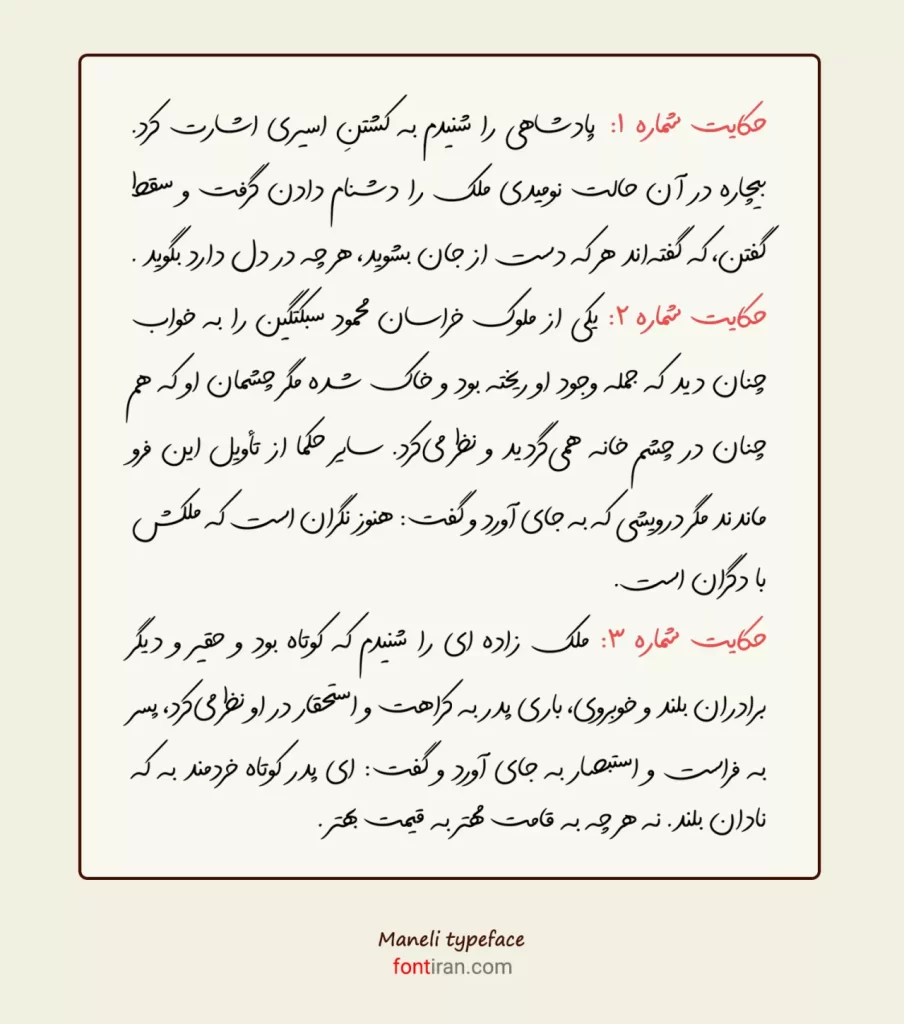 حکایت شماره ۱: پادشاهی را شنیدم به کشتنِ اسیری اشارت کرد.
بیچاره در آن حالت نومیدی ملک را دشنام دادن گرفت و سقط
گفتن، که گفته‌اند هر که دست از جان بشوید، هر چه در دل دارد بگوید .
حکایت شماره ۲: یکی از ملوک خراسان محمود سبکتگین را به خواب
چنان دید که جمله وجود او ریخته بود و خاک شده مگر چشمان او که هم
چنان در چشم خانه همی‌گردید و نظر می‌کرد. سایر حکما از تأویل این فرو
ماندند مگر درویشی که به جای آورد و گفت: هنوز نگران است که ملکش
با دگران است.
حکایت شماره ۳: ملک زاده ای را شنیدم که کوتاه بود و حقیر و دیگر
برادران بلند و خوبروی، باری پدر به کراهت و استحقار در او نظر می‌کرد، پسر
به فراست و استبصار به جای آورد و گفت: ای پدر کوتاه خردمند به که
نادان بلند. نه هر چه به قامت مهتر به قیمت بهتر .
Maneli typeface
fontiran.com